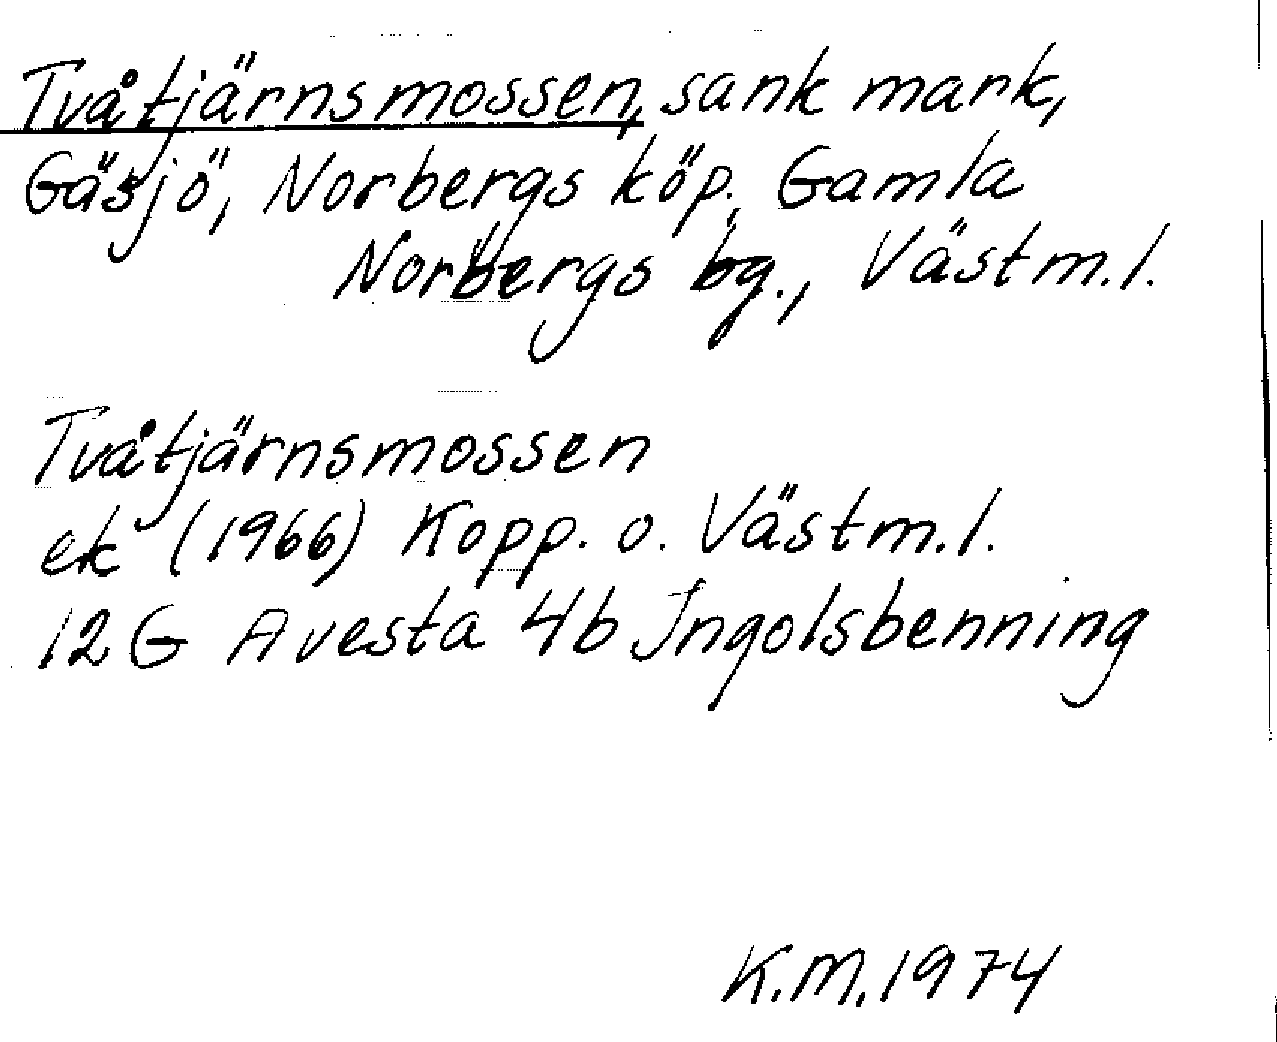 Tvåtjärnsmossen, sank mark,
Gäsjö, Norbergs köp., Gamla
Norbergs bg., Västm.l.
Tvåtjärnsmossen
ek (1966) Kopp. o. Västm.l.
12G Avesta 4b Ingolsbenning
K.M. 1974